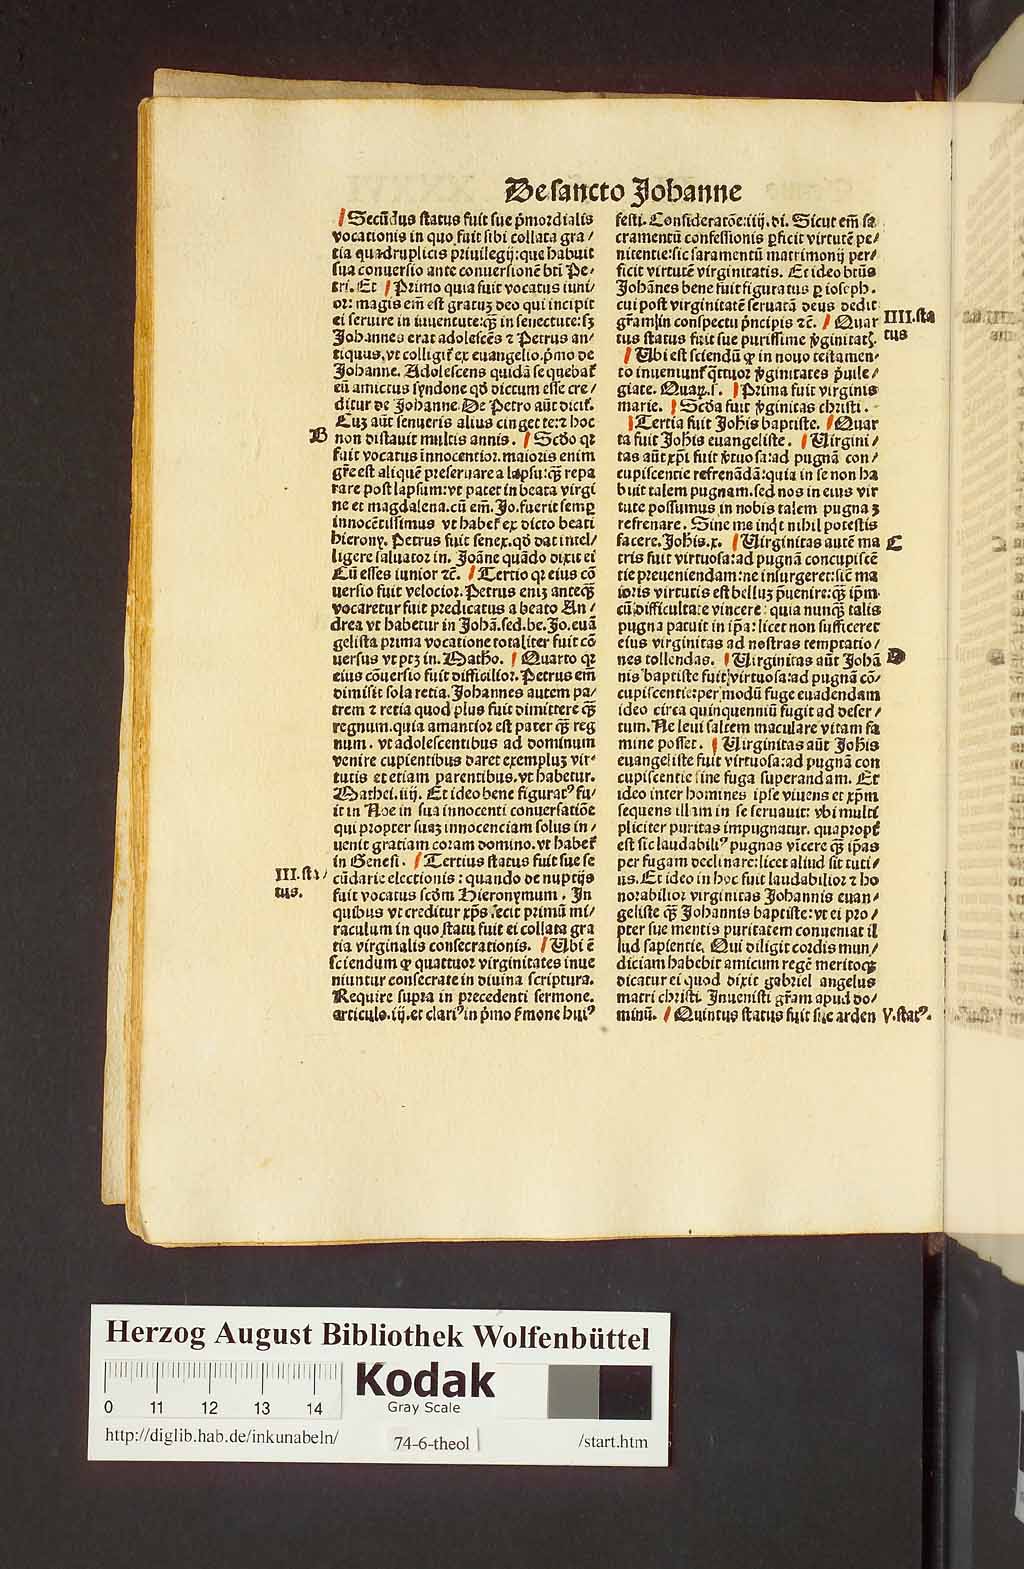 De sancto Johanne
Secūdus status fuit sue p̄mordialis
vocationis in quo fuit sibi collata gra/
tia quadruplicis priuilegij: que habuit
sua conuersio ante conuersionē bt̄i Pe-
tri. Et Primo quia fuit vocatus iuni/
or: magis em̄ est gratuʒ deo qui incipit
ei seruire in iuuentute: qȝ̄ in senectute: sʒ
Johannes erat adolescēs ⁊ Petrus an-
tiquus, vt colligit᷑ ex euangelio. p̄mo de
Johanne. Adolescens quidā sequebat᷑
eū amictus syndone qd̄ dictum esse cre/
ditur de Johanne. De Petro aūt dicit᷑.
Cuʒ aūt senueris alius cinget te: ⁊ hoc
B
non distauit multis annis. Scd̄o qꝛ
fuit vocatus innocentior. maioris enim
gr̄e est aliquē preseruare a lapsu: qȝ̄ repa
rare post lapsum: vt patet in beata virgi
ne et magdalena. cū em̄. Jo. fuerit semꝑ
innocētissimus vt habet᷑ ex dicto beati
hierony. Petrus fuit senex. qd̄ dat intel/
ligere saluator in. Joāne quādo dixit ei
Cū esses iunior ⁊c̄. Tertio qꝛ eius cō
uersio fuit velocior. Petrus eniʒ anteqȝ̄
vocaretur fuit predicatus a beato An/
drea vt habetur in Johā. sed. be. Jo. euā
gelista prima vocatione totaliter fuit cō
uersus vt ptʒ in. Math̄o. Quarto qꝛ
eius cōuersio fuit difficilior. Petrus em̄
dimisit sola retia. Johannes autem pa/
trem ⁊ retia quod plus fuit dimittere qȝ̄
regnum. quia amantior est pater qȝ̄ reg
num. vt adolescentibus ad dominum
venire cupientibus daret exempluʒ vir-
tutis et etiam parentibus. vt habetur.
Mathei. iiij. Et ideo bene figuratꝰ fu/
it in Noe in sua innocenti conuersatiōe
qui propter suaʒ innocenciam solus in/
uenit gratiam coram domino. vt habet᷑
in Genesi. Tertius status fuit sue se
III. sta/
tus.
cūdarie electionis: quando de nuptijs
fuit vocatus scd̄m Hieronymum. In
quibus vt creditur xp̄s fecit primū mi/
raculum in quo statu fuit ei collata gra
tia virginalis consecrationis. Ubi ē
sciendum ꝙ quattuor virginitates inue
niuntur consecrate in diuina scriptura.
Require supra in precedenti sermone.
articulo. iij. et clariꝰ in p̄mo s̄mone huiꝰ
festi. Consideratōe: iiij. di. Sicut em̄ sa
cramentū confessionis ꝑficit virtutē pe/
nitentie: sic saramentū matrimonij per/
ficit virtutē virginitatis. Et ideo bt̄us
Johānes bene fuit figuratus ꝑ ioseph.
cui post virginitatē seruatā deus dedit
gr̄am in conspectu p̄ncipis ⁊c̄. Quar
IIII. sta
tus
tus status fuit sue purissime v̄ginitatꝭ.
Ubi est sciendū ꝙ in nouo testamen-
to inueniunt᷑ q̄ttuor v̄ginitates p̄uile/
giate. Quaꝝ. s. Prima fuit virginis
marie. Scd̄a fuit v̄ginitas christi.
Tertia fuit Joh̄is baptiste. Quar
ta fuit Joh̄is euangeliste. Uirgini/
tas aūt xp̄i fuit v̄tuosa: ad pugnā con/
cupiscentie refrenādā: quia in se non ha
buit talem pugnam. sed nos in eius vir
tute possumus in nobis talem pugnaʒ
refrenare. Sine me inq̇t nihil potestis
facere. Joh̄is. x. Uirginitas autē ma
C
tris fuit virtuosa: ad pugnā concupiscē
tie preueniendam: ne insurgeret: sic̄ ma
ioris virtutis est belluʒ p̄uenire: qȝ̄ ip̄m
cū difficultate vincere: quia nunqȝ̄ talis
pugna patuit in ip̄a: licet non sufficeret
eius virginitas ad nostras temptatio/
nes tollendas. Uirginitas aūt Johā
D
nis baptiste fuit virtuosa: ad pugnā cō/
cupiscentie: per modū fuge euadendam
ideo circa quinquenniū fugit ad deser/
tum. Ne leui saltem maculare vitam fa
mine posset. Uirginitas aūt Joh̄is
euangeliste fuit virtuosa: ad pugnā con
cupiscentie sine fuga superandam. Et
ideo inter homines ipse viuens et xp̄m
sequens illam in se seruauit: vbi multi
pliciter puritas impugnatur. quapropt᷑
est sic laudabiliꝰ pugnas vicere qȝ̄ ip̄as
per fugam declinare: licet aliud sit tuti/
us. Et ideo in hoc fuit laudabilior ⁊ ho
norabilior virginitas Johannis euan/
geliste qȝ̄ Johannis baptiste: vt ei pro/
pter sue mentis puritatem conueniat il
lud sapientie. Qui diligit cordis mun/
diciam habebit amicum regē meritoqȝ
dicatur ei quod dixit gabriel angelus
matri christi. Inuenisti gr̄am apud do/
minū. Quintus status fuit sue arden
V. statꝰ.
Herzog August Bibliothek Wolfenbüttel
0 11 12 13 14
Kodak
Gray Scale
http://diglib.hab.de/inkunabeln/
74-6-theol
/start.htm